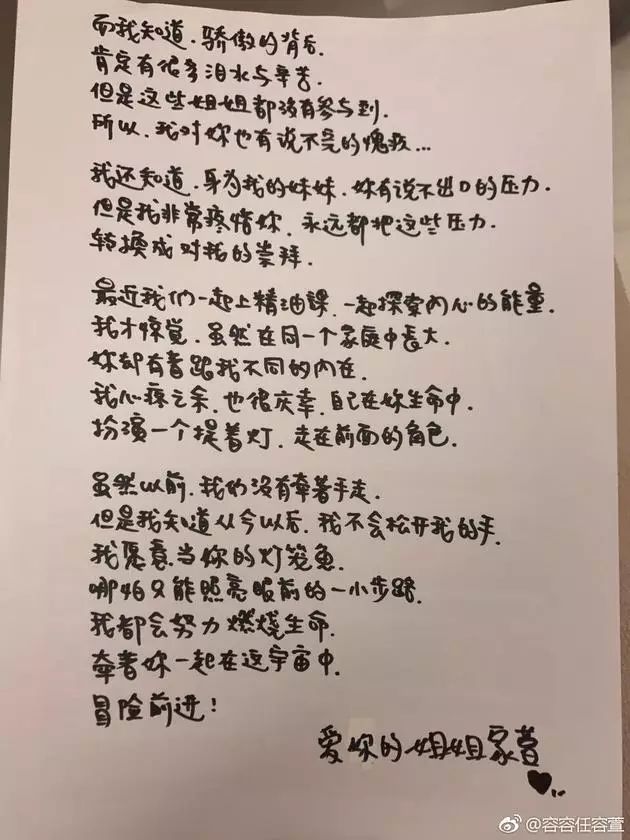 而我知道.骄傲的背后.
肯定有很多泪水与辛苦.
但是这些姐姐都没有参与到.
所以.我对妳也有说不完的愧疚...
我还知道.身为我的妹妹.妳有说不出口的压力.
但是我非常疼惜妳.永远都把这些压力.
转换成对我的崇拜.
最近我们一起上精油课.一起探索内心的能量.
我才惊觉.虽然在同一个家庭中长大.
妳却有着跟我不同的内在.
我心疼之余.也很庆幸.自己在妳生命中.
扮演一个提着灯.走在前面的角色.
虽然以前.我们没有牵着手走.
但是我知道从今以后.我不会松开我的手.
我愿意当妳的灯笼鱼.
哪怕只能照亮眼前的一小步路.
我都会努力燃烧生命.
牵着妳一起在这宇宙中.
冒险前进!
爱妳的姐姐家萱
@容容任容萱